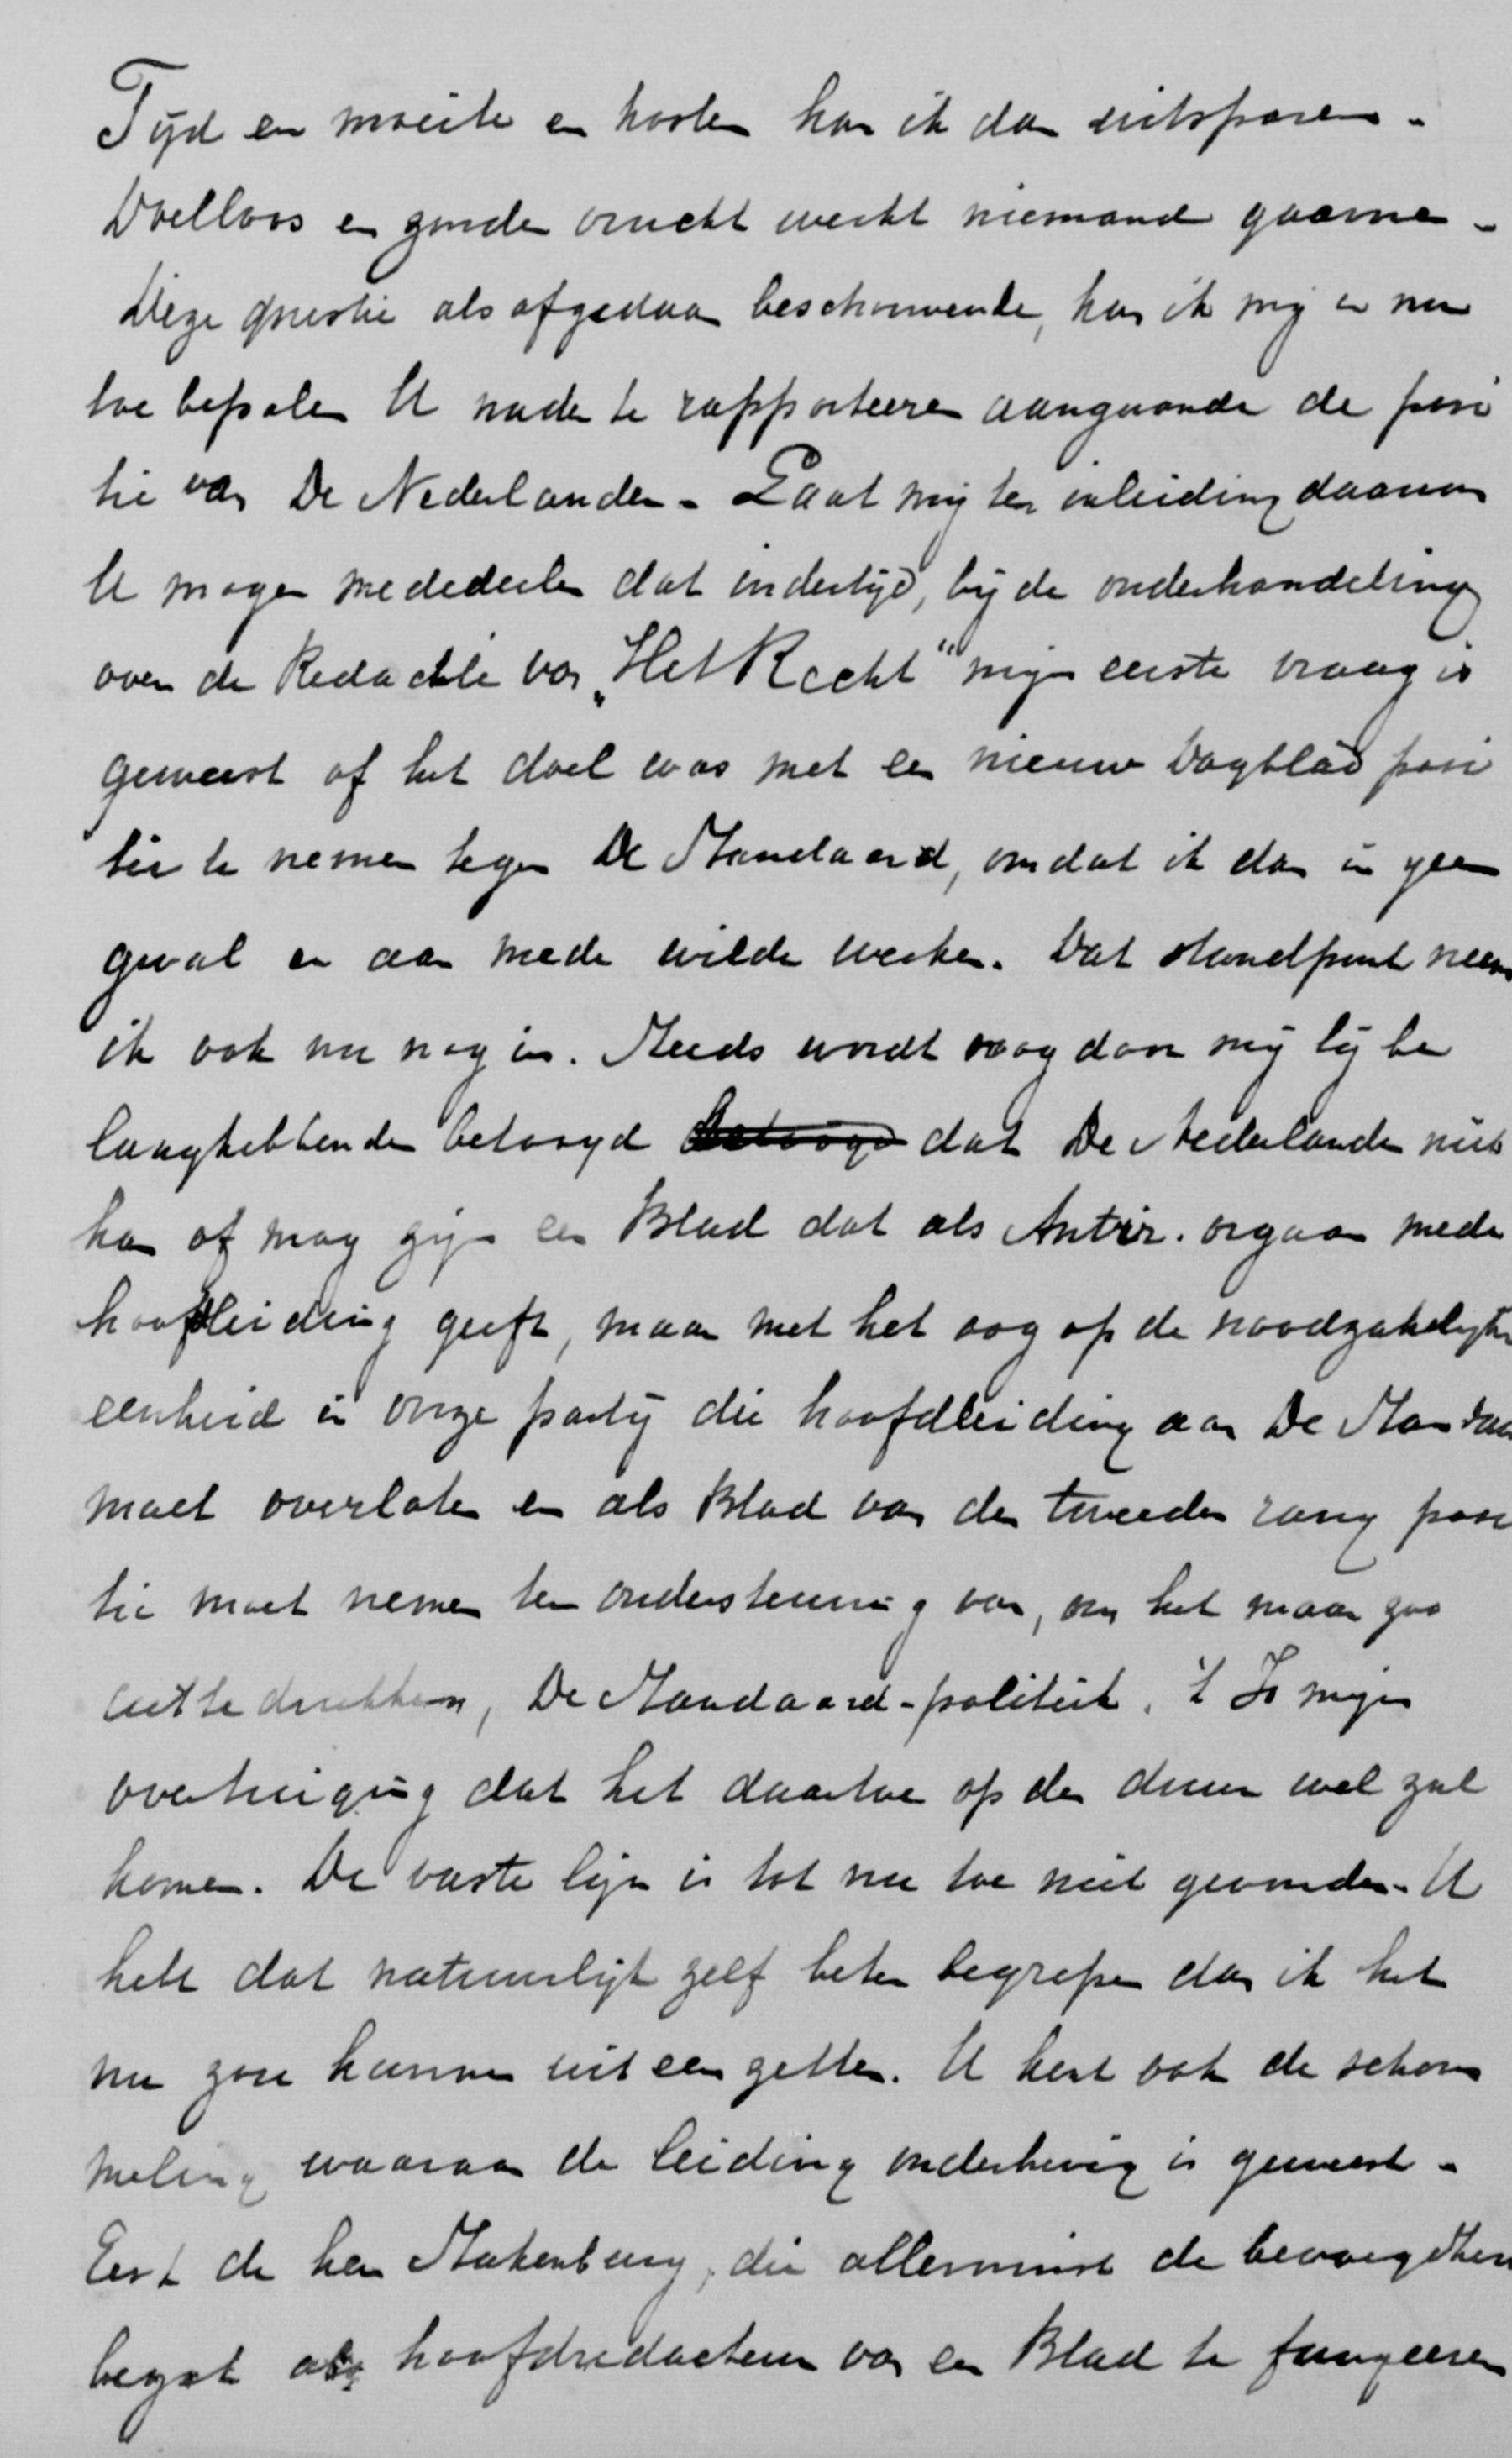 Tijd en moeite en kosten kan ik dan uitsparen.
Doelloos en zonder vrucht werkt niemand gaarne.
Deze questie als afgedaan beschouwende, kan ik mij er nu
toe bepalen U nader te rapporteeren aangaande de posi
tie van De Nederlander. Laat mij ter inleiding daarvan
U mogen mededeelen dat indertijd, bij de onderhandeling
over de Redactie van „Het Recht" mijn eerste vraag is
geweest of het doel was met een nieuw Dagblad posi
tie te nemen tegen De Standaard, omdat ik dan in geen
geval er aan mede wilde werken. Dat standpunt neem
ik ook nu nog in. Steeds wordt nog door mij bij be
langhebbenden betoogd betoogd dat De Nederlander niet
kan of mag zijn een Blad dat als Antir. orgaan mede
hoofdleiding geeft, maar met het oog op de noodzakelijke
eenheid in onze partij die hoofdleiding aan De Standaa
moet overlaten en als Blad van den tweeden rang posi
tie moet nemen ter ondersteuning van, om het maar zoo
uittedrukken, De Standaard-politiek. 't Is mijn
overtuiging dat het daartoe op den duur wel zal
komen. De vaste lijn is tot nu toe niet gevonden. U
hebt dat natuurlijk zelf beter begrepen dan ik het
nu zou kunnen uiteenzetten. U kent ook de schom
meling waaraan de leiding onderhevig is geweest.
Eerst de heer Stakenburg, die allerminst de bevoegdhei
bezat als hoofdredacteur van een Blad te fungeeren